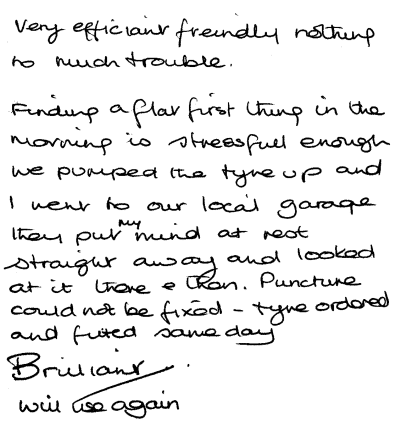 Very efficiant freindly nothing
to much trouble.
Finding a flat first thing in the
morning is stressfull enough
we pumped the tyre up and
I went to our local garage
they put my mind at rest
straight away and looked
at it there & then. Puncture
could not be fixed - tyre ordered
and fitted same day
Brilliant.
will use again